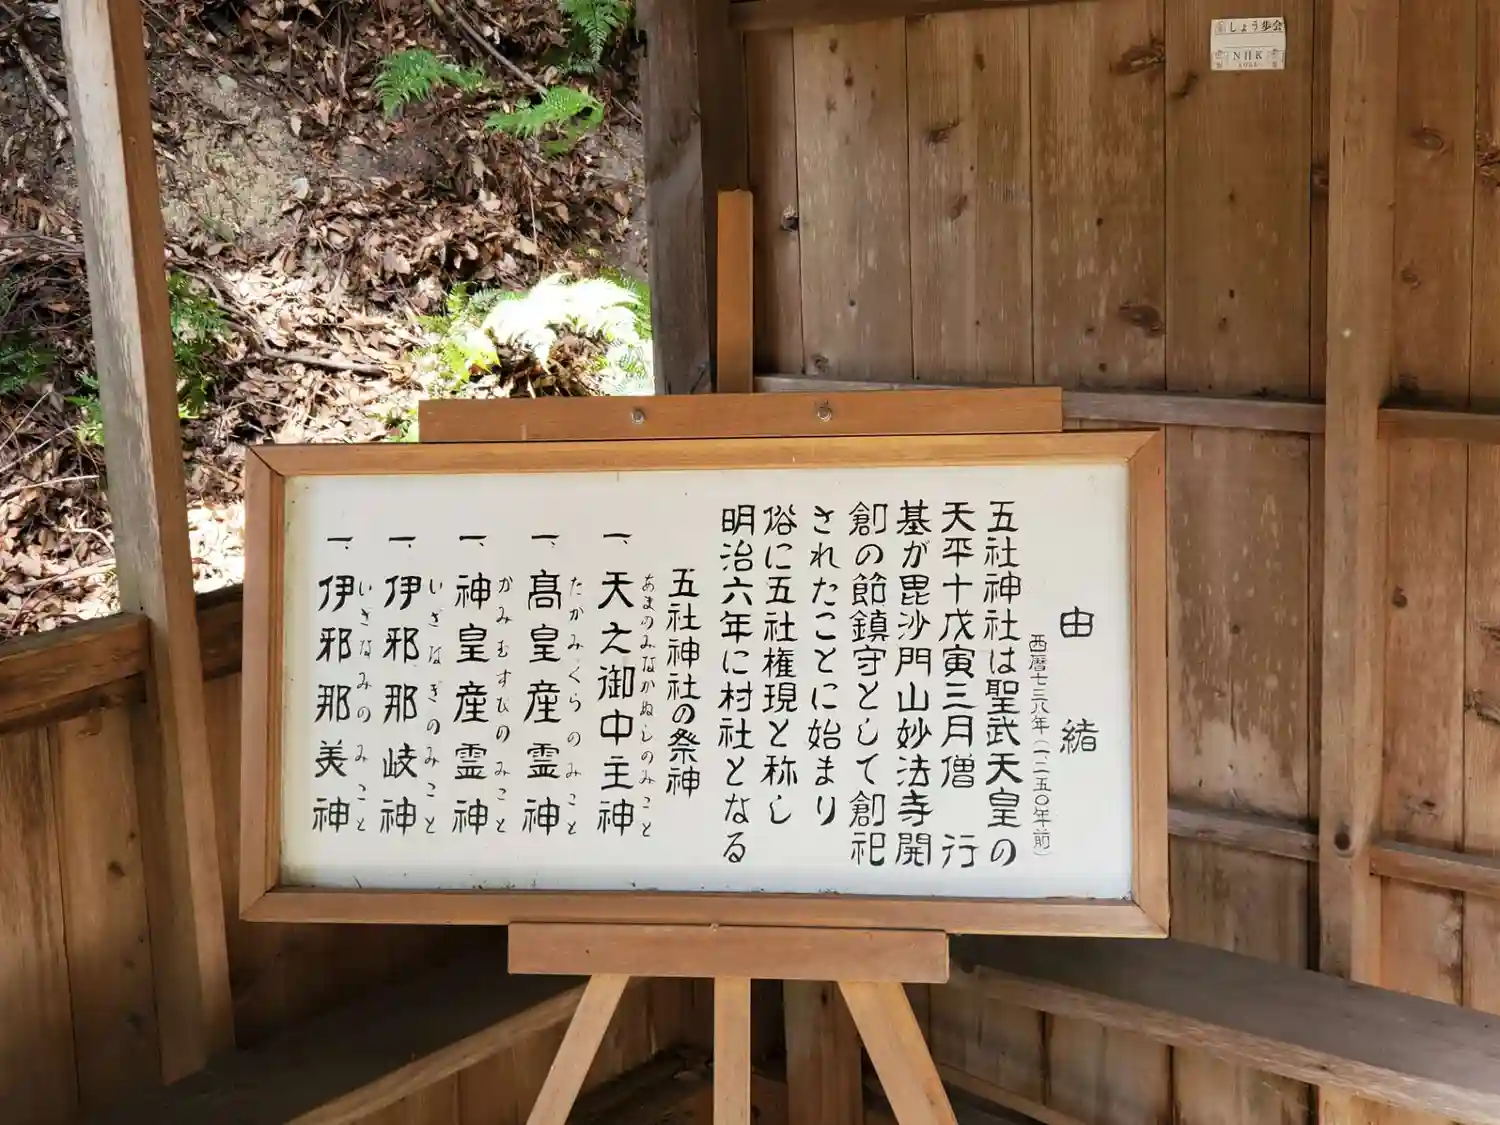 由緒
西暦七三八年(一二五〇年前)
五社神社は聖武天皇の
天平十戊寅三月僧 行
基が毘沙門山妙法寺開
創の節鎮守として創祀
されたことに始まり
俗に五社権現と称し
明治六年に村社となる
五社神社の祭神
あまのみなかぬしのみこと
一、天之御中主神
たかみくらのみこと
一、髙皇産霊神
かみむすびのみこと
一、神皇産霊神
いざなぎのみこと
一、伊邪那岐神
いざなみのみこと
一、伊邪那美神
しょう歩会
NHK